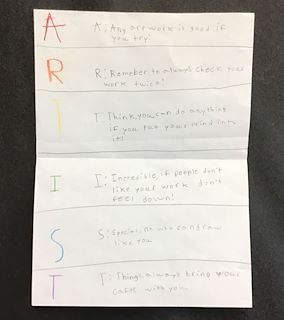 A
A: Any art work is good if
you try!
R
R: Remeber to always check your
work twice!
T
T: Think, you can do anything
if you put your mind into
it!
I
I: Incredible, if people don't
like your work don't
FEEL down!
S
S: Special, no who can draw
like you
T
T: Things, always bring your
cafts with you